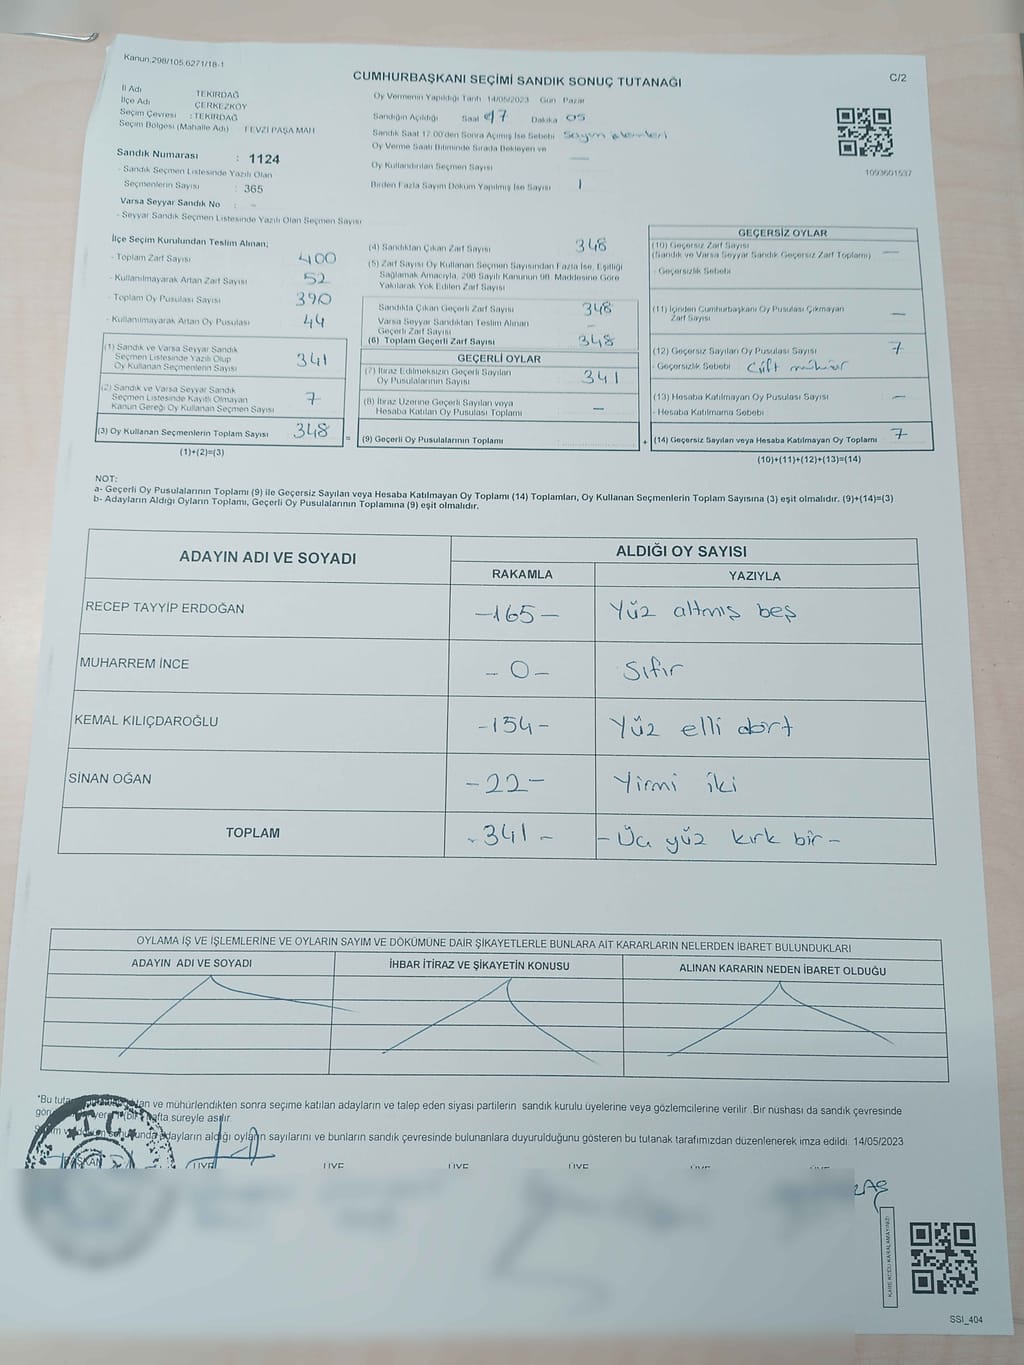 Kanun,298/105,6271/18-1
CUMHURBAŞKANI SEÇİMİ SANDIK SONUÇ TUTANAĞI
C/2
İl Adı TEKİRDAĞ
İlçe Adı ÇERKEZKÖY
Seçim Çevresi : TEKİRDAĞ
Seçim Bölgesi (Mahalle Adı) FEVZİ PAŞA MAH
Oy Vermenin Yapıldığı Tarih 14/05/2023 Gün Pazar
Sandığın Açıldığı Saat 17 Dakika 05
Sandık Saat 17.00'den Sonra Açılmış İse Sebebi Sayım işlemleri
Oy Verme Saati Bitiminde Sırada Bekleyen ve
Oy Kullandırılan Seçmen Sayısı —
Birden Fazla Sayım Döküm Yapılmış İse Sayısı 1
1093601537
Sandık Numarası : 1124
- Sandık Seçmen Listesinde Yazılı Olan
Seçmenlerin Sayısı : 365
Varsa Seyyar Sandık No : -
- Seyyar Sandık Seçmen Listesinde Yazılı Olan Seçmen Sayısı
İlçe Seçim Kurulundan Teslim Alınan;
- Toplam Zarf Sayısı 400
- Kullanılmayarak Artan Zarf Sayısı 52
- Toplam Oy Pusulası Sayısı 390
- Kullanılmayarak Artan Oy Pusulası 44
(1) Sandık ve Varsa Seyyar Sandık
Seçmen Listesinde Yazılı Olup
Oy Kullanan Seçmenlerin Sayısı 341
(2) Sandık ve Varsa Seyyar Sandık
Seçmen Listesinde Kayıtlı Olmayan
Kanun Gereği Oy Kullanan Seçmen Sayısı 7
(3) Oy Kullanan Seçmenlerin Toplam Sayısı 348 =
(1)+(2)=(3)
(4) Sandıktan Çıkan Zarf Sayısı 348
(5) Zarf Sayısı Oy Kullanan Seçmen Sayısından Fazla İse, Eşitliği
Sağlamak Amacıyla, 298 Sayılı Kanunun 98. Maddesine Göre
Yakılarak Yok Edilen Zarf Sayısı
Sandıkta Çıkan Geçerli Zarf Sayısı 348
Varsa Seyyar Sandıktan Teslim Alınan
Geçerli Zarf Sayısı —
(6) Toplam Geçerli Zarf Sayısı 348
GEÇERLİ OYLAR
(7) İtiraz Edilmeksizin Geçerli Sayılan
Oy Pusulalarının Sayısı 341
(8) İtiraz Üzerine Geçerli Sayılan veya
Hesaba Katılan Oy Pusulası Toplamı —
(9) Geçerli Oy Pusulalarının Toplamı +
GEÇERSİZ OYLAR
(10) Geçersiz Zarf Sayısı
(Sandık ve Varsa Seyyar Sandık Geçersiz Zarf Toplamı) —
- Geçersizlik Sebebi
(11) İçinden Cumhurbaşkanı Oy Pusulası Çıkmayan
Zarf Sayısı —
(12) Geçersiz Sayılan Oy Pusulası Sayısı 7
- Geçersizlik Sebebi Çift mühür
(13) Hesaba Katılmayan Oy Pusulası Sayısı —
- Hesaba Katılmama Sebebi
(14) Geçersiz Sayılan veya Hesaba Katılmayan Oy Toplamı 7
(10)+(11)+(12)+(13)=(14)
NOT:
a- Geçerli Oy Pusulalarının Toplamı (9) ile Geçersiz Sayılan veya Hesaba Katılmayan Oy Toplamı (14) Toplamları, Oy Kullanan Seçmenlerin Toplam Sayısına (3) eşit olmalıdır. (9)+(14)=(3)
b- Adayların Aldığı Oyların Toplamı, Geçerli Oy Pusulalarının Toplamına (9) eşit olmalıdır.
ADAYIN ADI VE SOYADI ALDIĞI OY SAYISI
RAKAMLA YAZIYLA
RECEP TAYYİP ERDOĞAN -165- Yüz altmış beş
MUHARREM İNCE -0- Sıfır
KEMAL KILIÇDAROĞLU -154- Yüz elli dört
SİNAN OĞAN -22- Yirmi iki
TOPLAM -341- -Üç yüz kırk bir-
OYLAMA İŞ VE İŞLEMLERİNE VE OYLARIN SAYIM VE DÖKÜMÜNE DAİR ŞİKAYETLERLE BUNLARA AİT KARARLARIN NELERDEN İBARET BULUNDUKLARI
ADAYIN ADI VE SOYADI İHBAR İTİRAZ VE ŞİKAYETİN KONUSU ALINAN KARARIN NEDEN İBARET OLDUĞU
*Bu ve mühürlendikten sonra seçime katılan adayların ve talep eden siyasi partilerin sandık kurulu üyelerine veya gözlemcilerine verilir. Bir nüshası da sandık çevresinde
hafta süreyle asılır.
adayların aldığı oyların sayılarını ve bunların sandık çevresinde bulunanlara duyurulduğunu gösteren bu tutanak tarafımızdan düzenlenerek imza edildi. 14/05/2023
T.C.
BAŞKAN ÜYE ÜYE ÜYE ÜYE ÜYE ÜYE
KARE KODU KARALAMAYINIZ!
SSI_404